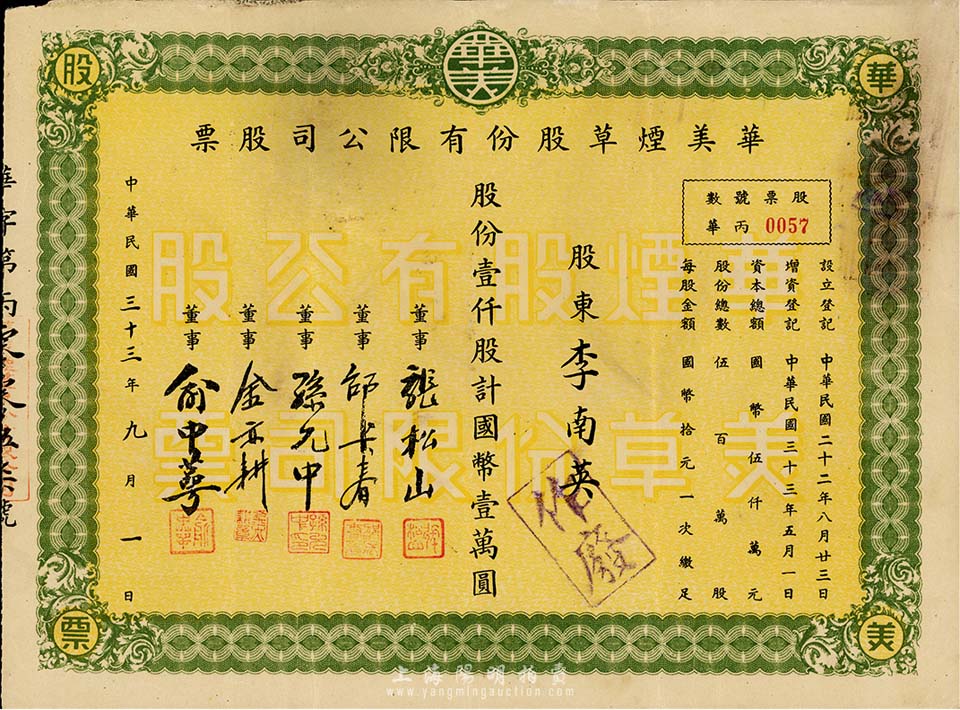 華美
華
美
股
票
華美煙草股份有限公司股票
股票號數
華丙 0057
設立登記 中華民國二十二年八月廿三日
增資登記 中華民國三十三年五月一日
資本總額 國幣伍仟萬元
股份總數 伍百萬股
每股金額 國幣拾元一次繳足
股東 李南英
作廢
股份壹仟股計國幣壹萬圓
董事 張松山
董事
董事 孫允中
董事 金亦耕
董事 俞中萼
中華民國三十三年九月一日
華煙股有公股
美草份限司票
華字第丙零零伍柒號
上海陽明拍賣
www.yangmingauction.com